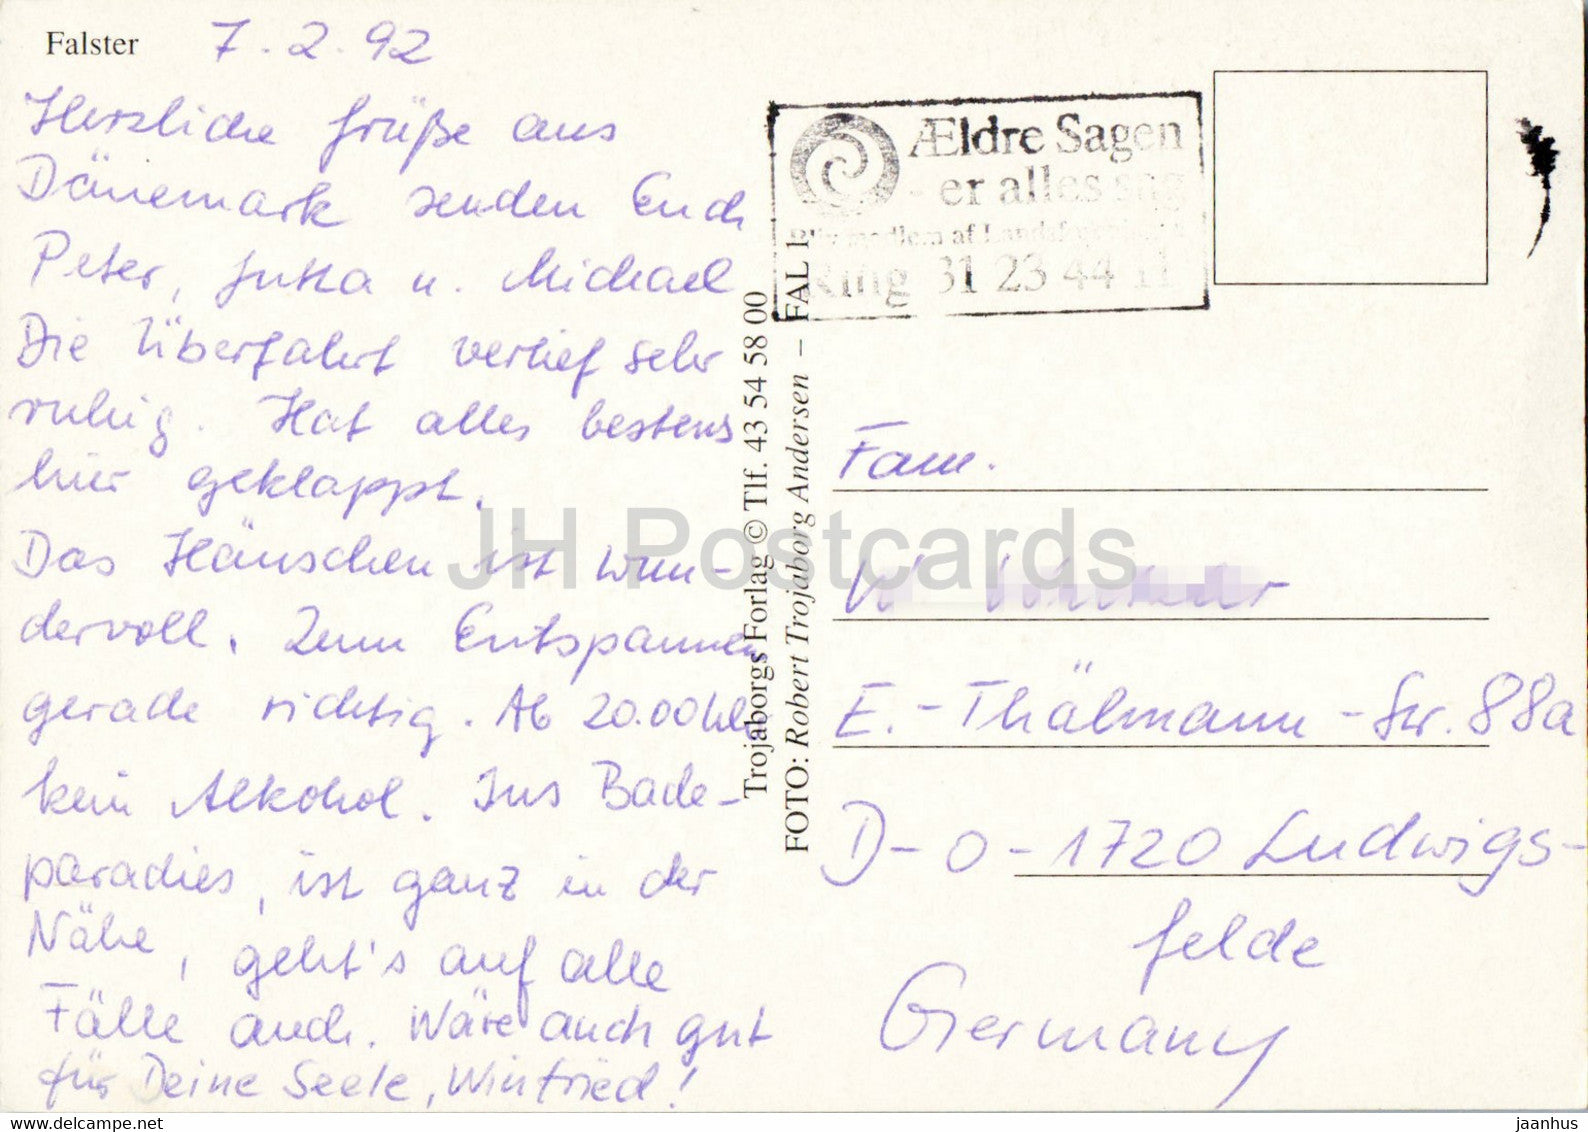 Falster 7.2.92
Herzliche Grüße aus
Dänemark senden Euch
Peter, Jutta u. Michael
Die Überfahrt verlief sehr
ruhig. Hat alles bestens
hier geklappt.
Das Häuschen ist wun-
dervoll. Zum Entspannen
gerade richtig. Ab 20.00 Uhr
kein Alkohol. Ins Bade-
paradies, ist ganz in der
Nähe, geht's auf alle
Fälle auch. Wäre auch gut
für Deine Seele, Winfried!
Trojaborgs Forlag © Tlf. 43 54 58 00
FOTO: Robert Trojaborg Andersen – FAL 1
Ældre Sagen
- er alles sag
Bliv medlem af
Ring 31 23 44 11
Fam.
W.
E.-Thälmann-Str. 88a
D-O-1720 Ludwigs-
felde
Germany
JH Postcards
delcampe.net
jaanhus